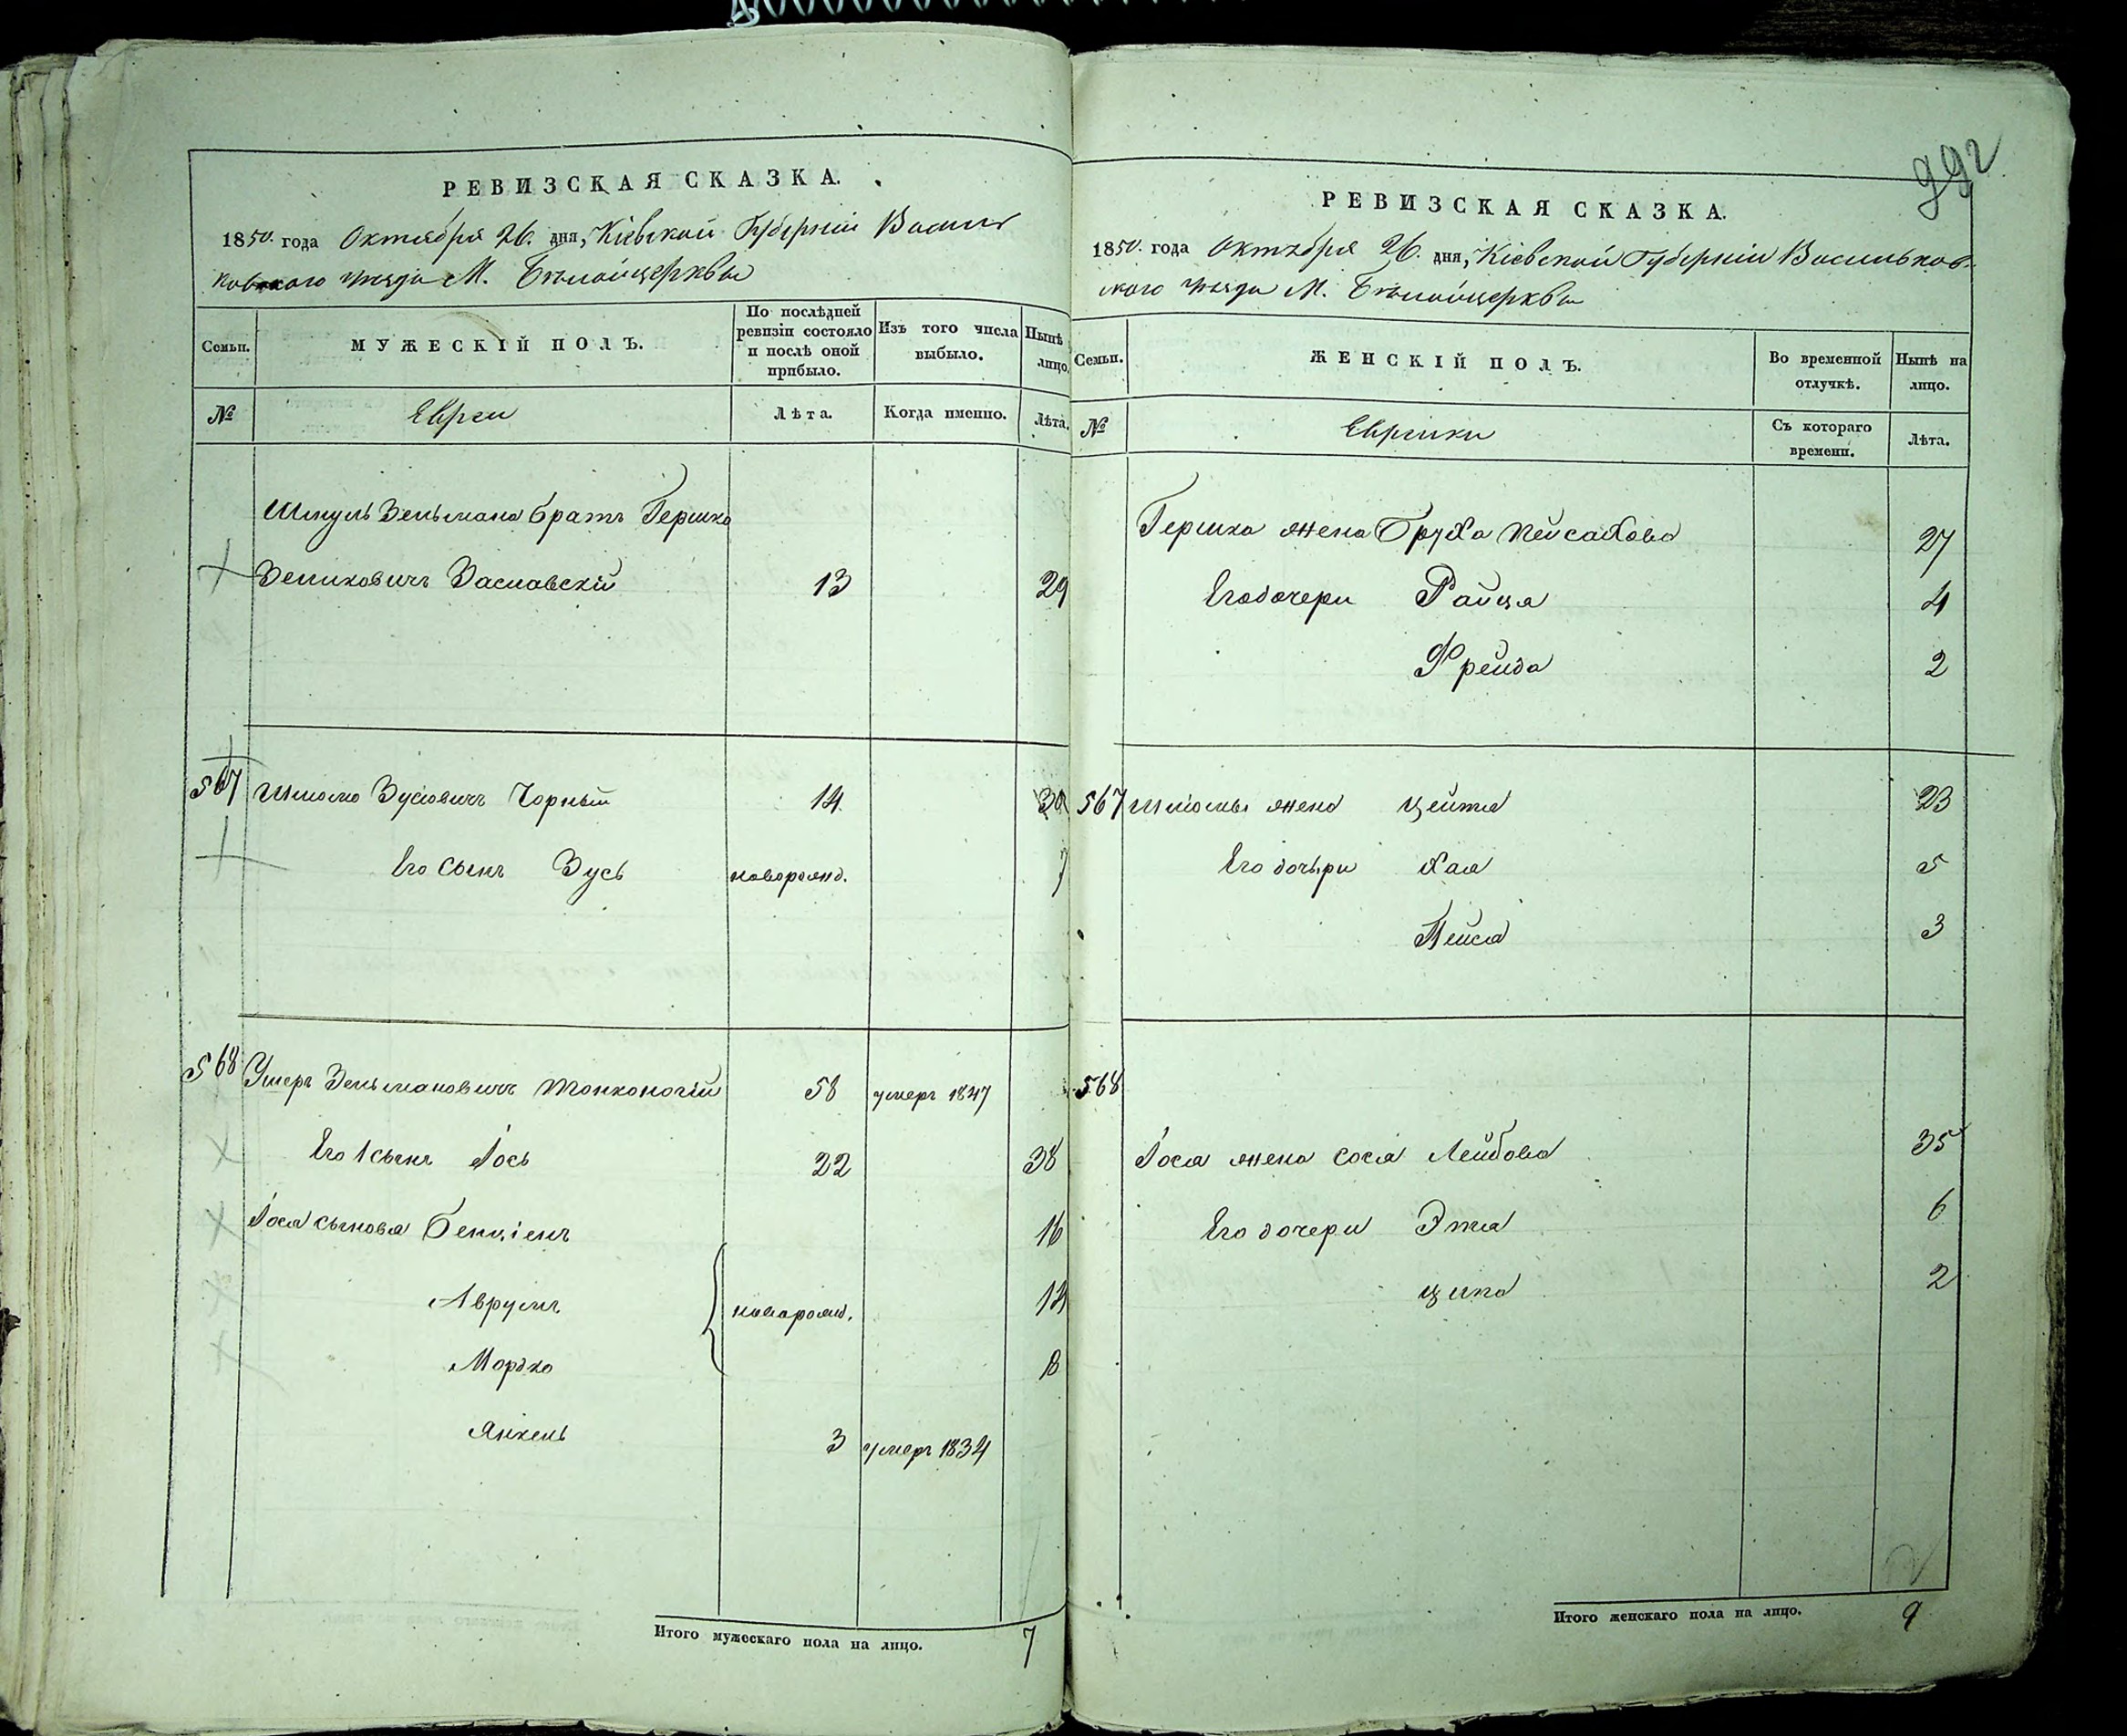 992
РЕВИЗСКАЯ СКАЗКА.
1850. года Октября 26. дня, Кіевской Губерніи Василь
ковского уезда М. Бѣлойцеркви
Семьи. МУЖЕСКІЙ ПОЛЪ. По послѣдней ревизіи состояло и послѣ оной прибыло. Изъ того числа выбыло. Нынѣ лицо.
№ Евреи Лѣта. Когда именно. Лѣта.
Шмуль Зельмана братъ Гершко
Зеликовичъ Заславскій 13 29
567 Шліомо Зусіовичъ Чорный 14 30
Его Сынъ Зусь новорожд. 7
568 Ушеръ Зельмановичъ Тонконогій 58 умеръ 1847
Его 1 сынъ Іось 22 38
Іося сыновя Бенціенъ 16
Аврумъ новорожд. 14
Мордко 8
Янкель 3 умеръ 1834
Итого мужескаго пола на лицо. 7
РЕВИЗСКАЯ СКАЗКА.
1850. года Октября 26. дня, Кіевской Губерніи Васильков-
ского уезда М. Бѣлойцеркви
Семьи. ЖЕНСКІЙ ПОЛЪ. Во временной отлучкѣ. Нынѣ на лицо.
№ Еврейки Съ котораго времени. Лѣта.
Гершка жена Бруха Пейсахова 27
Его дочери Райця 4
Фрейда 2
567 Шліомы жена Цейтя 23
Его дочери Хая 5
Пейся 3
568
Іося жена Сося Лейбова 35
Его дочери Этя 6
Ципа 2
Итого женскаго пола на лицо. 9